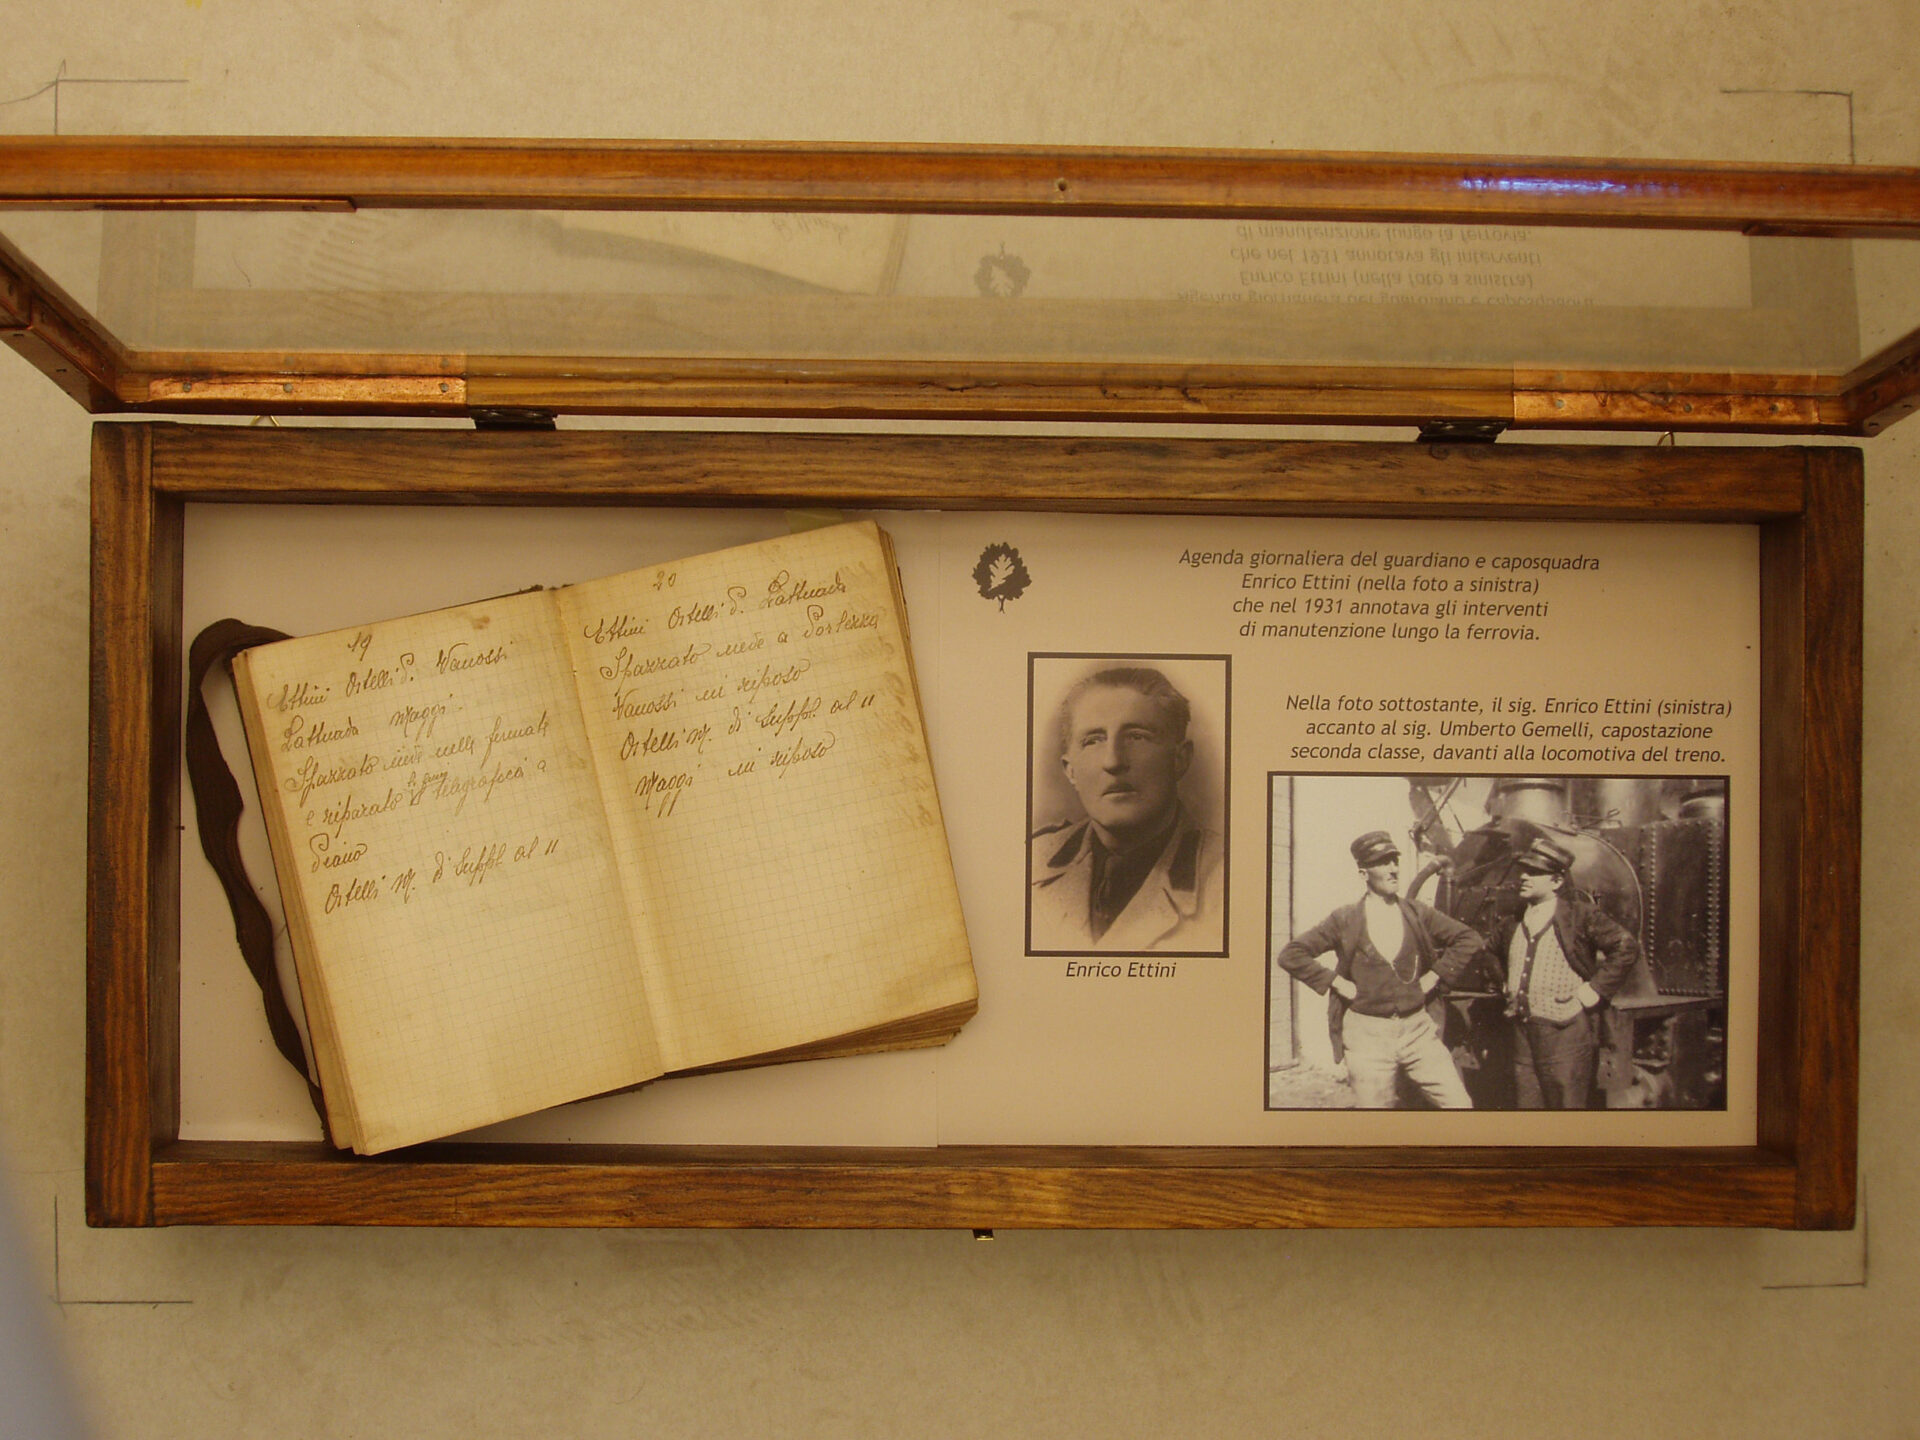 19
Ettini Ortelli P. Vanossi
Lattuada Maggi.
Spazzato neve nelle fermate
e riparato telegrafica a
Piano
Ortelli M. di Suppl al 11
20
Ettini Ortelli P. Lattuada
Spazzato neve a Porlezza
Vanossi in riposo
Ortelli M. di Suppl. al 11
Maggi in riposo
Agenda giornaliera del guardiano e caposquadra
Enrico Ettini (nella foto a sinistra)
che nel 1931 annotava gli interventi
di manutenzione lungo la ferrovia.
Enrico Ettini
Nella foto sottostante, il sig. Enrico Ettini (sinistra)
accanto al sig. Umberto Gemelli, capostazione
seconda classe, davanti alla locomotiva del treno.